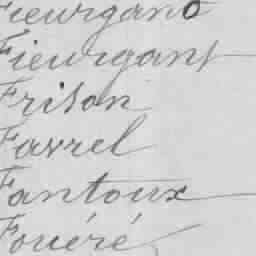 Fieurgant
Fieurgant
Frison
Favrel
Fantoux
Fouéré